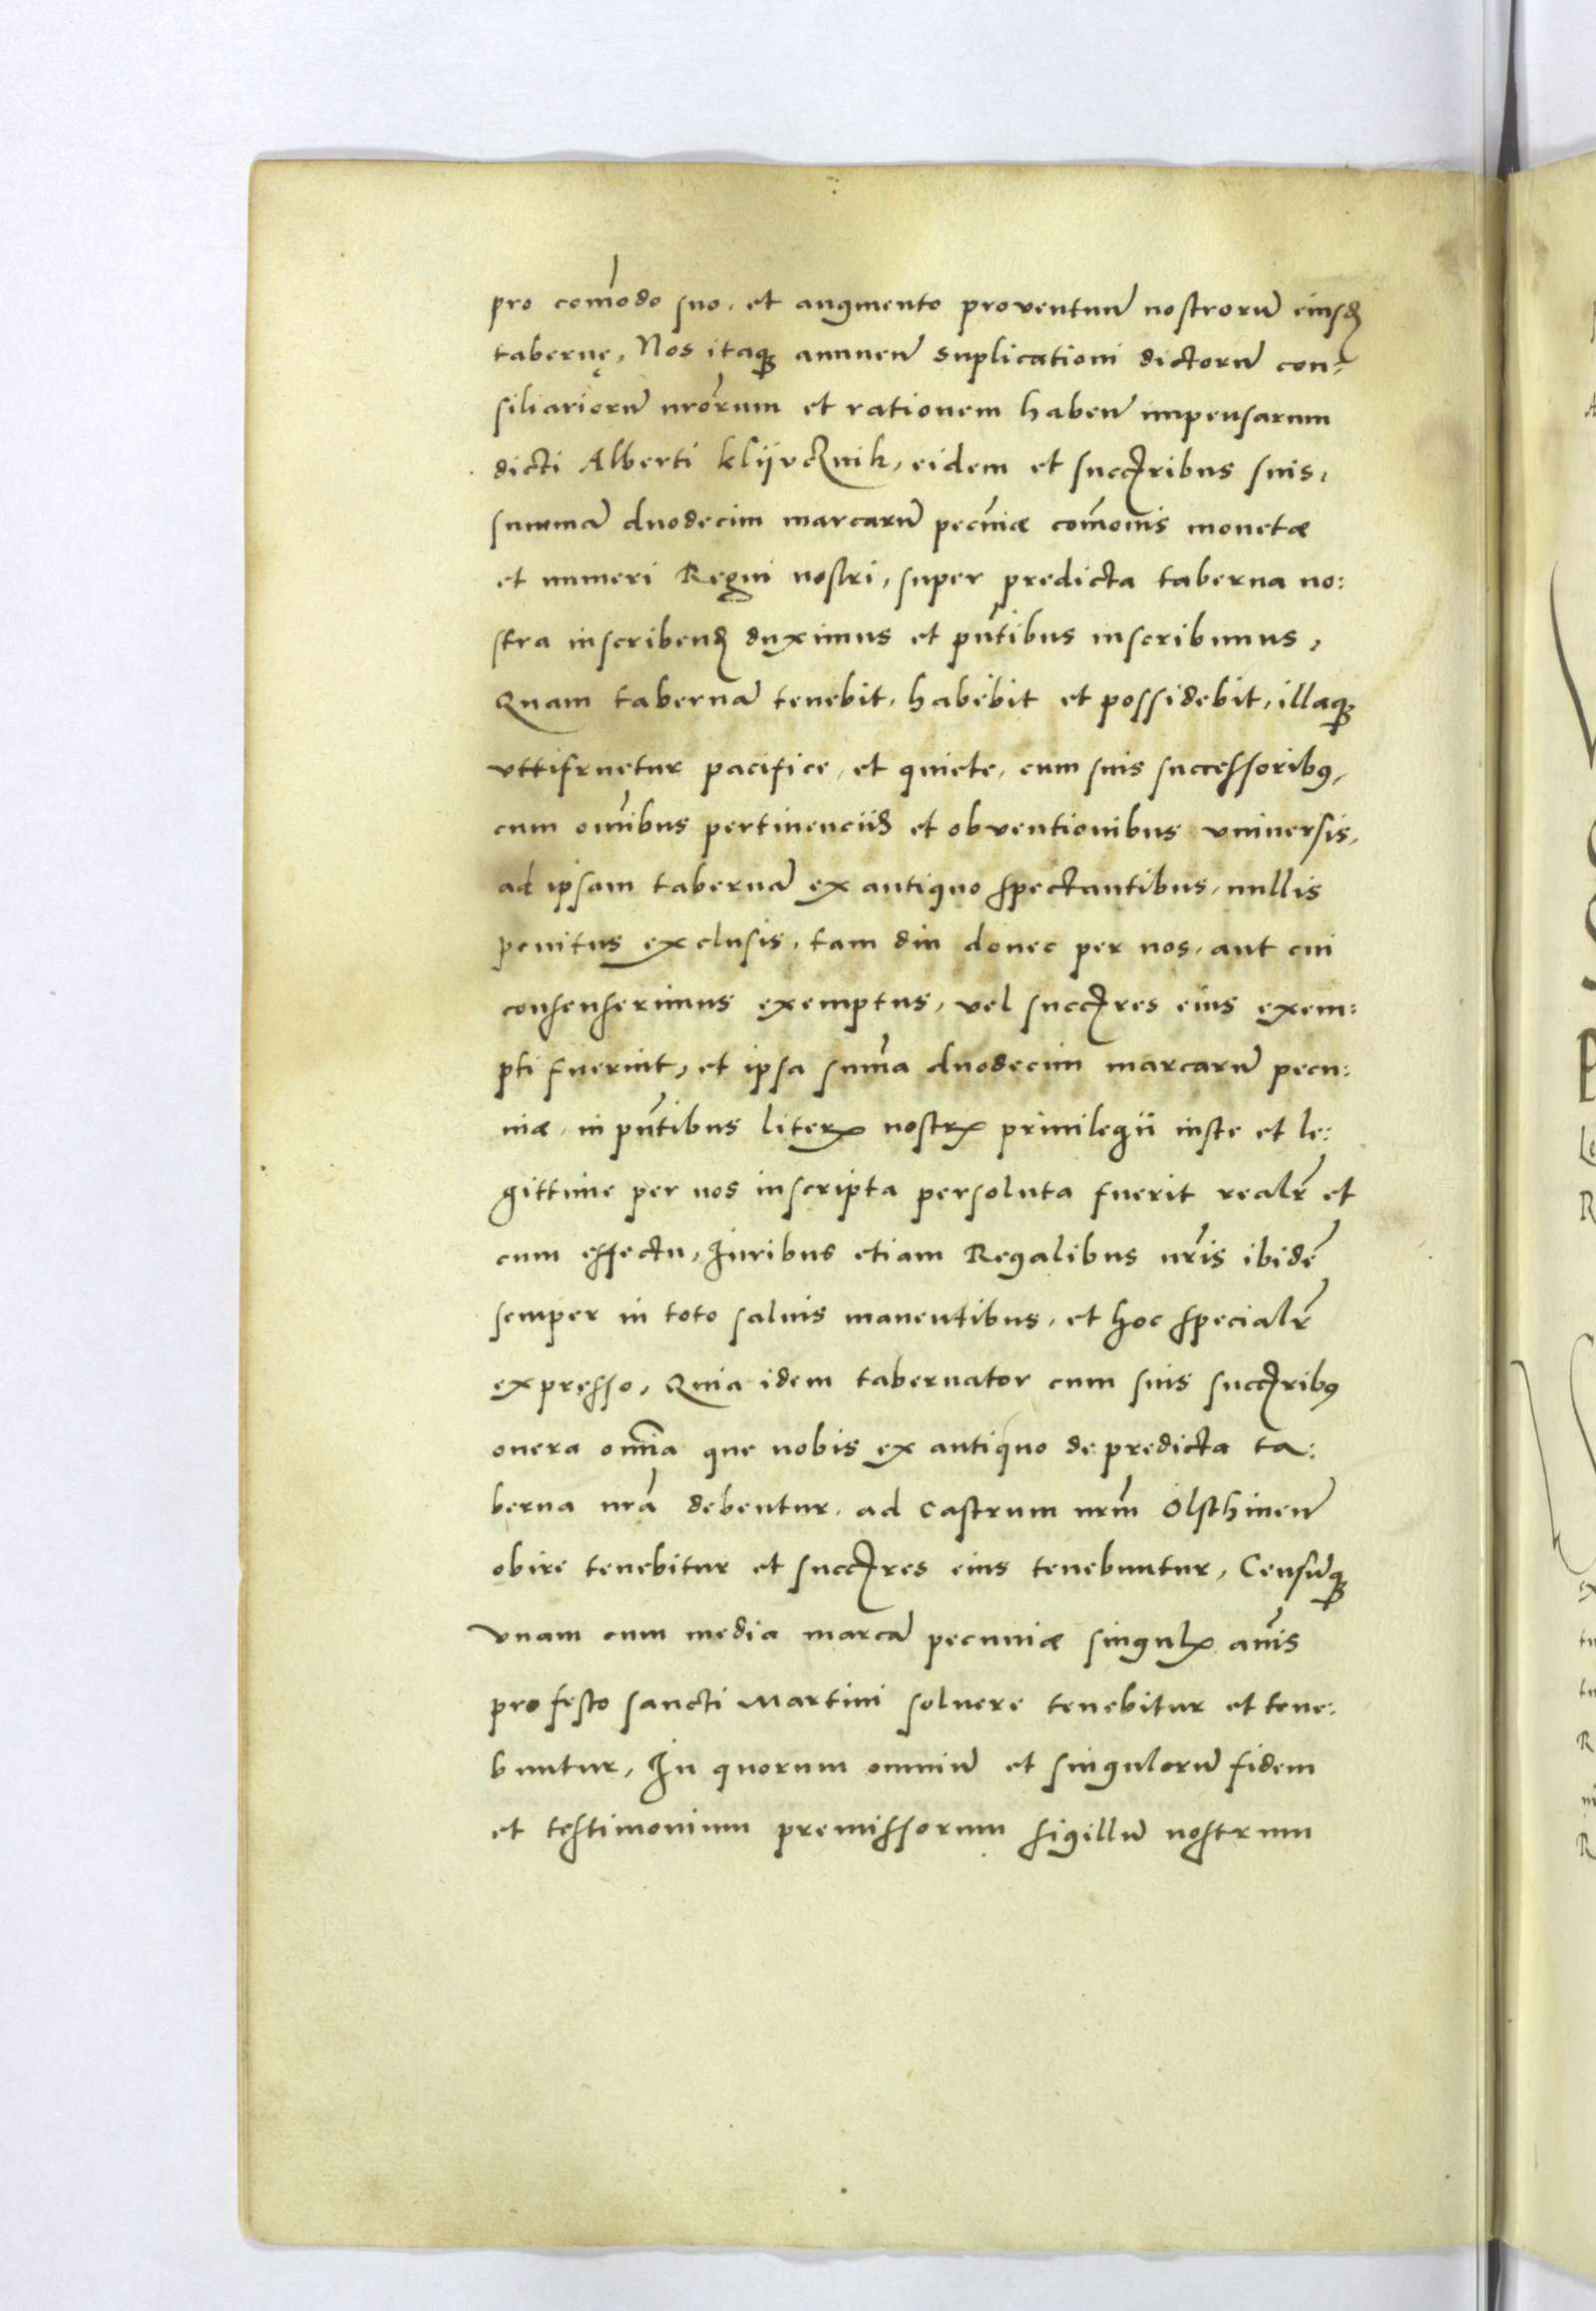 pro com̃odo suo, et augmento proventuũ nostrorũ eiusđ
tabernę, Nos itaqꝫ annueñ suplicationi dictorũ con-
siliariorũ nrõrum et rationem habeñ impensarum
dicti Alberti klijvcznik, eidem et succꝛibus suis,
summã duodecim marcarũ pecũiæ com̃ouis monetæ
et numeri Regni nostri, super predicta taberna no:
stra inscribenđ duximus et pñtibus inscribimus,
Quam tabernã tenebit, habebit et possidebit, illaqꝫ
vttifruetur pacifice, et quiete, cum suis successoribꝰ,
cum om̃ibus pertinenciis et obventionibus vniuersis,
ad ipsam tabernã ex antiquo spectantibus, nullis
penitus exclusis, tam diu donec per nos, aut cui
consenserimus exemptus, vel succꝛes eius exem:
pti fuerint, et ipsa sum̃a duodecim marcarũ pecu:
niæ, in pñtibus literꝝ nostrꝝ priuilegii iuste et le:
gittime per nos inscripta persoluta fuerit realr̃ et
cum effectu, Iuribus etiam Regalibus nrĩs ibidẽ
semper in toto saluis manentibus, et hoc specialr̃
expresso, Quia idem tabernator cum suis succꝛibꝰ
onera om̃ia que nobis ex antiquo de predicta ta:
berna nrã debentur, ad castrum nrm̃ Olsthineñ
obire tenebitur et succꝛes eius tenebuntur, Censũqꝫ
vnam cum media marcã pecuniæ singulꝝ añis
pro festo sancti Martini soluere tenebitur et tene:
buntur, In quorum omniũ et singulorũ fidem
et testimonium premissorum sigillũ nostrum